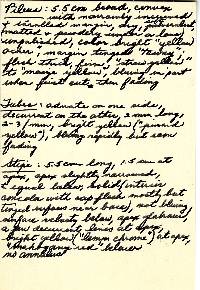 Pileus: 5.5 cm broad, convex
with narrowly incurved
& sterile margin, dry, subviscid,
matted & powdery under a lens,
unpolished, color bright "yellow
ocher", margin tinged "tawny",
flesh thick, firm, "citron yellow"
to "maize yellow", bluing in part
when first cut then fading

Tubes: adnate on one side,
decurrent on the other, 3 mm long,
2-3/mm, bright yellow ("aniline
yellow"), bluing rapidly but soon
fading

Stipe: 5.5 cm long, 1.5 cm at
apex, apex slightly narrowed,
± equal below, solid, interior
concolor with cap flesh mostly but
tinged rufous near base, not bluing,
surface velvety below, apex glabrous,
a few decurrent lines at apex,
bright yellow ("lemon chrome") at apex,
"mahogany red" below
no annulus